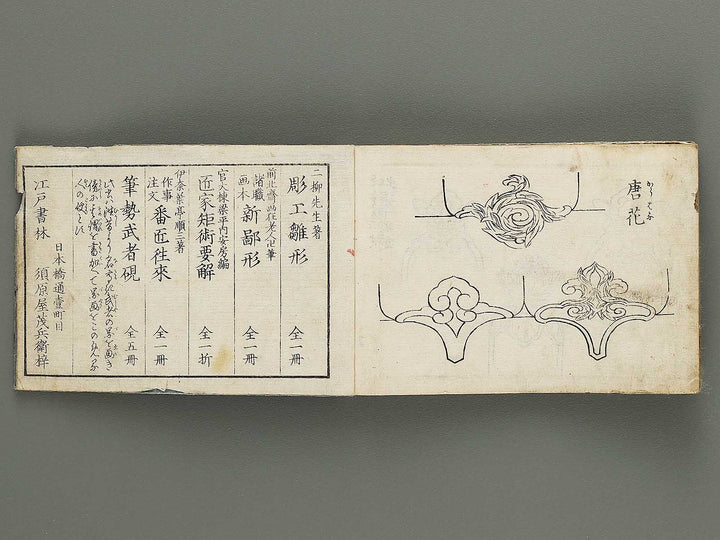 唐花
からはな
二柳先生著
彫工雛形 全一冊
前北斎画狂老人卍筆
諸職画本 新鄙形 全一冊
官大棟梁平内安房編
匠家矩術要解 全一折
伊泰葉亭順三著
作事注文 番匠往來 全一冊
筆勢武者硯 全五冊
江戸書林 日本橋通壹町目 須原屋茂兵衛梓